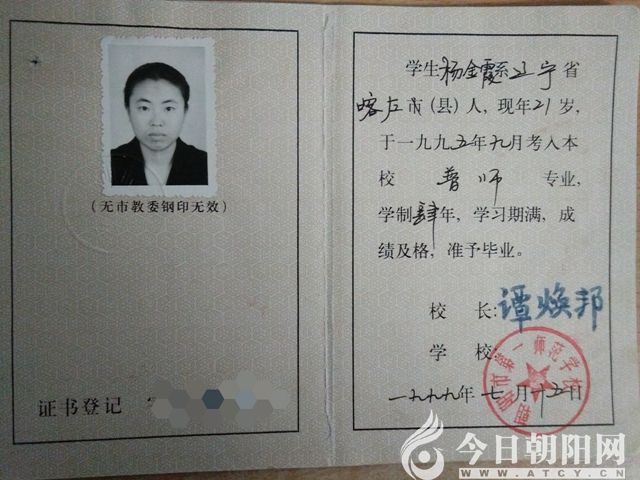 (无市教委钢印无效)
证书登记
学生杨金霞系辽宁省
喀左市(县)人，现年21岁，
于一九九五年九月考入本
校 普师 专业，
学制肆年，学习期满，成
绩及格，准予毕业。
校 长:谭焕邦
学 校:
朝阳市第一师范学校
一九九九年七月十五日
今日朝阳网
WWW.ATCY.CN